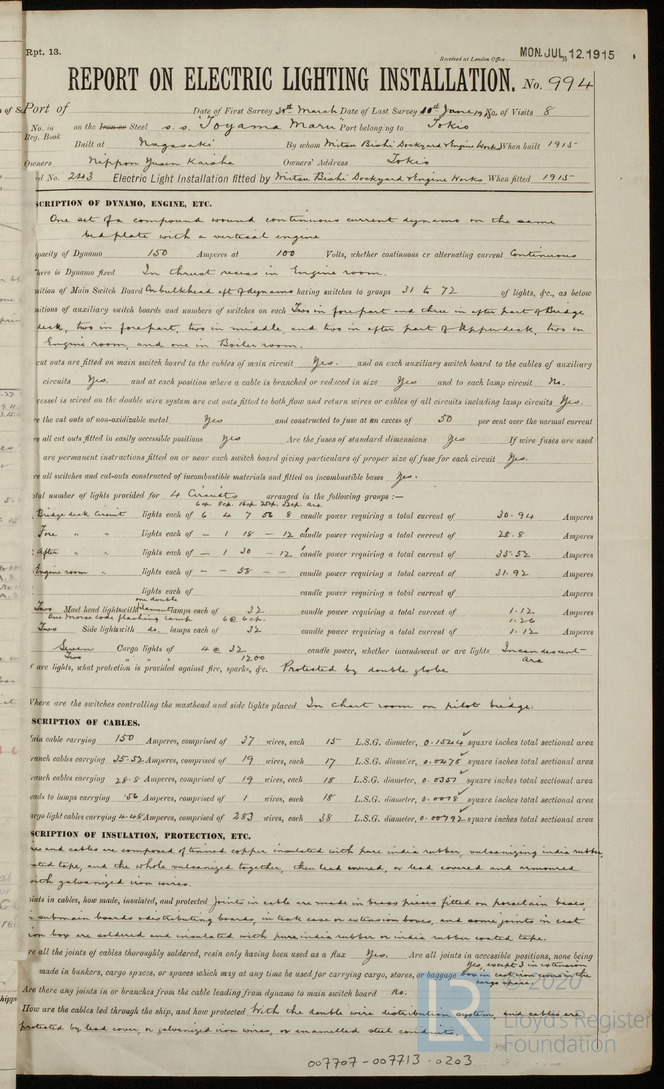 Rpt. 13.
Received at London Office
MON. JUL, 12. 1915
REPORT ON ELECTRIC LIGHTING INSTALLATION. No. 994
Port of Date of First Survey 30th March Date of Last Survey 10th June No. of Visits 8
No. in Reg. Book on the Iron or Steel s.s. "Toyama Maru" Port belonging to Tokio
Built at Nagasaki By whom Mitsu Bishi Dockyard & Engine Works When built 1915
Owners Nippon Yusen Kaisha Owners' Address Tokio
rd No. 243 Electric Light Installation fitted by Mitsu Bishi Dockyard & Engine Works When fitted 1915
SCRIPTION OF DYNAMO, ENGINE, ETC.
One set of a compound wound continuous current dynamo on the same
bedplate with a vertical engine
pacity of Dynamo 150 Amperes at 100 Volts, whether continuous or alternating current Continuous
here is Dynamo fixed In thrust recess in Engine room.
sition of Main Switch Board On bulkhead aft of dynamo having switches to groups 31 to 72 of lights, &c., as below
sitions of auxiliary switch boards and numbers of switches on each Two in forepart and three in after part of Bridge
deck, two in forepart, two in middle, and two in after part of Upperdeck, two in
Engine room, and one in Boiler room.
cut outs are fitted on main switch board to the cables of main circuit Yes. and on each auxiliary switch board to the cables of auxiliary
circuits Yes. and at each position where a cable is branched or reduced in size Yes and to each lamp circuit No.
vessel is wired on the double wire system are cut outs fitted to both flow and return wires or cables of all circuits including lamp circuits Yes.
re the cut outs of non-oxidizable metal Yes and constructed to fuse at an excess of 50 per cent over the normal current
re all cut outs fitted in easily accessible positions Yes Are the fuses of standard dimensions Yes If wire fuses are used
are permanent instructions fitted on or near each switch board giving particulars of proper size of fuse for each circuit Yes.
re all switches and cut-outs constructed of incombustible materials and fitted on incombustible bases Yes.
otal number of lights provided for 4 Circuits arranged in the following groups :—
6cp. 8cp. 16cp. 25cp. 32cp. arc
Bridge deck Circuit lights each of 6 4 7 56 8 candle power requiring a total current of 30.94 Amperes
Fore " " lights each of — 1 18 — 12 candle power requiring a total current of 28.8 Amperes
After " " lights each of — 1 30 — 12 candle power requiring a total current of 35.52 Amperes
Engine room " lights each of — — 58 — — candle power requiring a total current of 31.92 Amperes
lights each of candle power requiring a total current of Amperes
Two Mast head lights with one double filament lamps each of 32 candle power requiring a total current of 1.12 Amperes
One Morse code flashing lamp 6 @ 6 cp. 1.26
Two Side lights with do. lamps each of 32 candle power requiring a total current of 1.12 Amperes
Seven Cargo lights of 4 @ 32 candle power, whether incandescent or arc lights Incandescent
Two " " " 1200 Arc
f arc lights, what protection is provided against fire, sparks, &c. Protected by double globe
Where are the switches controlling the masthead and side lights placed In chart room on pilot bridge.
SCRIPTION OF CABLES.
ain cable carrying 150 Amperes, comprised of 37 wires, each 15 L.S.G. diameter, 0.1544 square inches total sectional area
ranch cables carrying 35.52 Amperes, comprised of 19 wires, each 17 L.S.G. diameter, 0.0478 square inches total sectional area
ranch cables carrying 28.8 Amperes, comprised of 19 wires, each 18 L.S.G. diameter, 0.0351 square inches total sectional area
eads to lamps carrying .56 Amperes, comprised of 1 wires, each 18 L.S.G. diameter, 0.0018 square inches total sectional area
argo light cables carrying 4.48 Amperes, comprised of 283 wires, each 38 L.S.G. diameter, 0.00792 square inches total sectional area
SCRIPTION OF INSULATION, PROTECTION, ETC.
res and cables are composed of tinned copper insulated with pure india rubber, vulcanizing india rubber,
ated tape, and the whole vulcanized together, then lead covered, or lead covered and armoured
with galvanized iron wires.
oints in cables, how made, insulated, and protected Joints in cable are made in brass pieces fitted on porcelain bases,
in submain boards & distributing boards in teak case or extension boxes, and some joints in cast
iron box are soldered and insulated with pure india rubber or india rubber coated tape.
re all the joints of cables thoroughly soldered, resin only having been used as a flux Yes. Are all joints in accessible positions, none being
made in bunkers, cargo spaces, or spaces which may at any time be used for carrying cargo, stores, or baggage Yes, except 3 in extension
box in cast iron cover in the
cargo space.
Are there any joints in or branches from the cable leading from dynamo to main switch board No.
How are the cables led through the ship, and how protected With the double wire distribution system, and cables are
protected by lead cover, or galvanized iron wires, or enamelled steel conduits.
LR
© 2020
Lloyd's Register
Foundation
007707-007713-0203